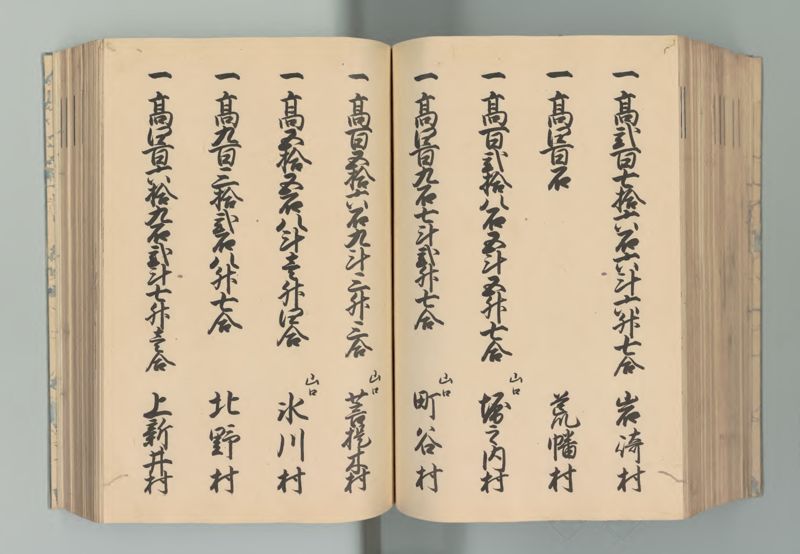 一 高弐百七拾六石六斗六升七合 岩崎村
一 高四百石 荒幡村
一 高百弐拾八石五斗五升七合 山口 堀之内村
一 高四百九石七斗弐升七合 山口 町谷村
一 高百五拾六石九斗二升二合 山口 菩提木村
一 高五拾五石八斗壱升四合 山口 氷川村
一 高九百二拾弐石八升七合 北野村
一 高四百六拾九石弐斗七升壱合 上新井村